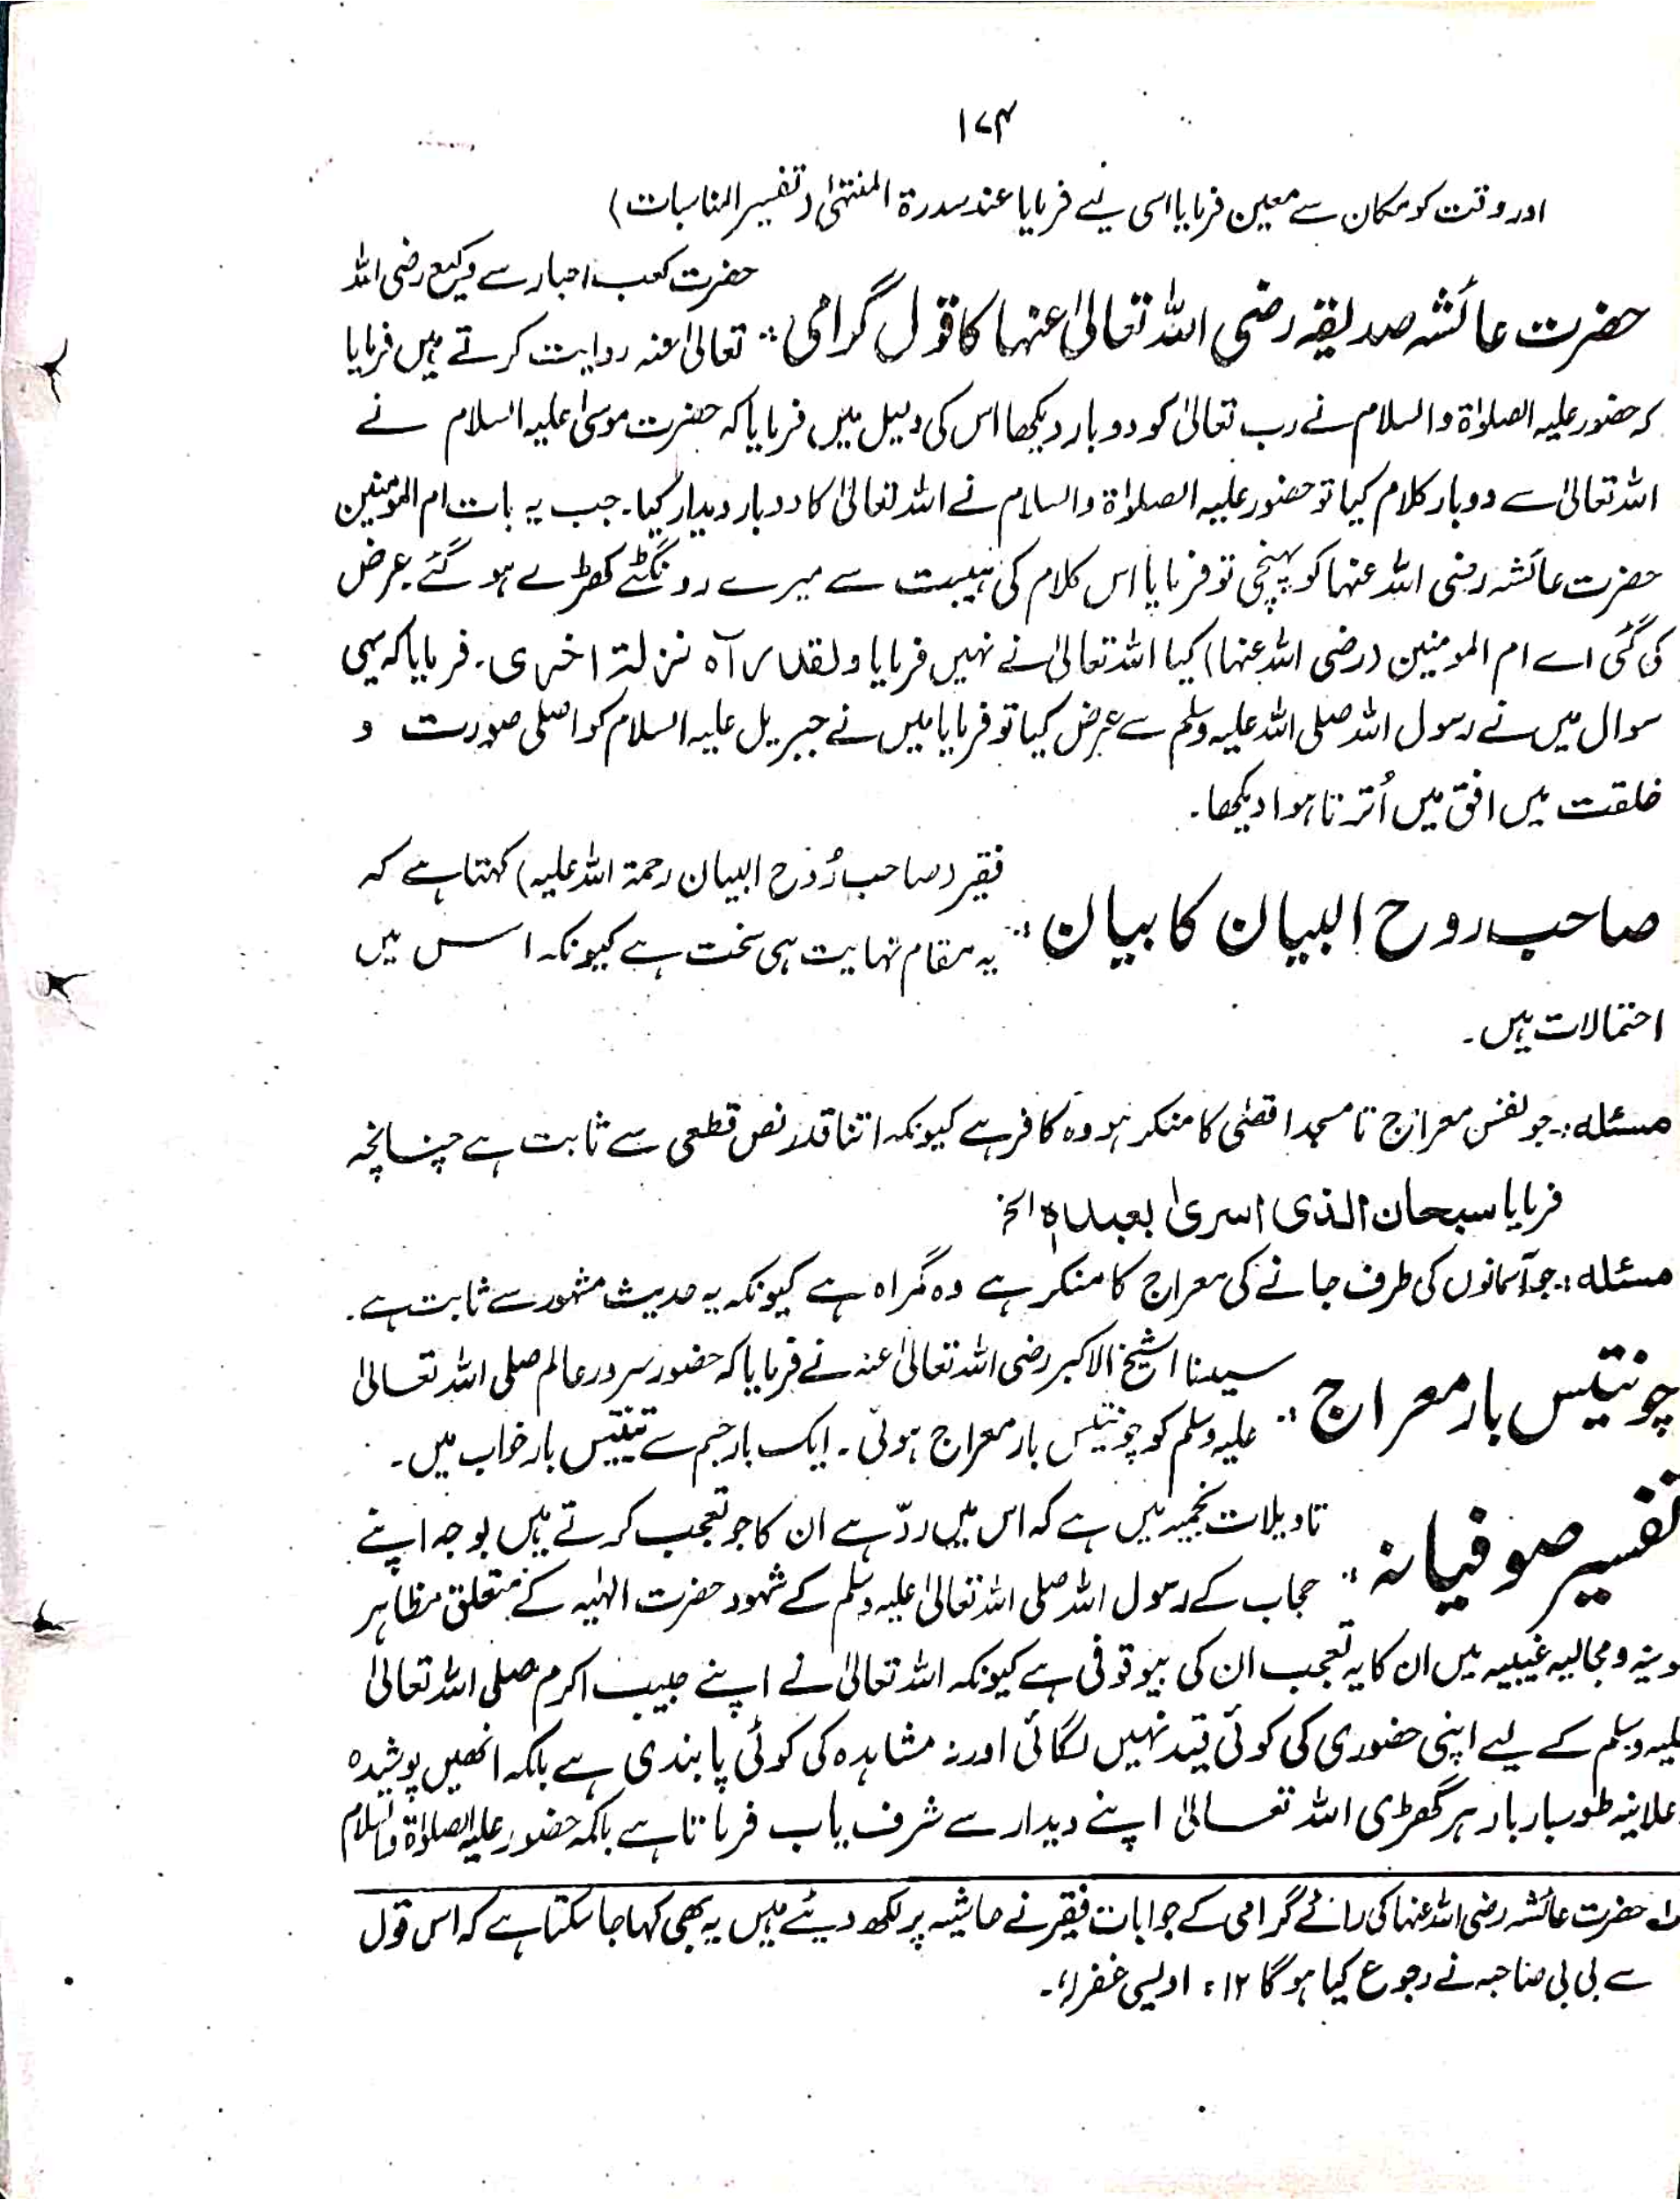 ۱۷۴
اور وقت کو مکان سے معین فرمایا اسی لیے فرمایا عند سدرۃ المنتہیٰ (تفسیر المناسبات)
حضرت عائشہ صدیقہ رضی اللہ تعالیٰ عنہا کا قول گرامی :
حضرت کعب احبار سے وکیع رضی اللہ
تعالیٰ عنہ روایت کرتے ہیں فرمایا
کہ حضور علیہ الصلوٰۃ والسلام نے رب تعالیٰ کو دو بار دیکھا اس کی دلیل میں فرمایا کہ حضرت موسیٰ علیہ السلام نے
اللہ تعالیٰ سے دو بار کلام کیا تو حضور علیہ الصلوٰۃ والسلام نے اللہ تعالیٰ کا دو بار دیدار کیا۔ جب یہ بات ام المومنین
حضرت عائشہ رضی اللہ عنہا کو پہنچی تو فرمایا اس کلام کی ہیبت سے میرے رونگٹے کھڑے ہو گئے۔ عرض
کی گئی اے ام المومنین (رضی اللہ عنہا) کیا اللہ تعالیٰ نے نہیں فرمایا ولقد رآہ نزلۃ اخری۔ فرمایا کہ یہی
سوال میں نے رسول اللہ صلی اللہ علیہ وسلم سے عرض کیا تو فرمایا میں نے جبریل علیہ السلام کو اصلی صورت و
خلقت میں افق میں اُترتا ہوا دیکھا۔
صاحب روح البیان کا بیان :
فقیر (صاحب رُوح البیان رحمۃ اللہ علیہ) کہتا ہے کہ
یہ مقام نہایت ہی سخت ہے کیونکہ اس میں
احتمالات ہیں۔
مسئلہ :۔ جو نفس معراج تا مسجد اقصٰی کا منکر ہو وہ کافر ہے کیونکہ اتنا قدر نص قطعی سے ثابت ہے چنانچہ
فرمایا سبحان الذی اسریٰ بعبدہٖ الخ
مسئلہ :۔ جو آسمانوں کی طرف جانے کی معراج کا منکر ہے وہ گمراہ ہے کیونکہ یہ حدیث مشہور سے ثابت ہے۔
چونتیس بار معراج :
سیدنا الشیخ الاکبر رضی اللہ تعالیٰ عنہ نے فرمایا کہ حضور سرور عالم صلی اللہ تعالیٰ
علیہ وسلم کو چونتیس بار معراج ہوئی۔ ایک بار جسم سے تینتیس بار خواب میں۔
تفسیر صوفیانہ :
تاویلات نجمیہ میں ہے کہ اس میں ردّ ہے ان کا جو تعجب کرتے ہیں بوجہ اپنے
حجاب کے رسول اللہ صلی اللہ تعالیٰ علیہ وسلم کے شہود حضرت الٰہیہ کے متعلق مظاہر
و مجالیہ غیبیہ میں ان کا یہ تعجب ان کی بیوقوفی ہے کیونکہ اللہ تعالیٰ نے اپنے حبیب اکرم صلی اللہ تعالیٰ
علیہ وسلم کے لیے اپنی حضوری کی کوئی قید نہیں لگائی اور نہ مشاہدہ کی کوئی پابندی ہے بلکہ انھیں پوشیدہ
علانیہ طور بار بار ہر گھڑی اللہ تعالیٰ اپنے دیدار سے شرف یاب فرماتا ہے بلکہ حضور علیہ الصلوٰۃ والسلام
حضرت عائشہ رضی اللہ عنہا کی رائے گرامی کے جوابات فقیر نے حاشیہ پر لکھ دیئے ہیں یہ بھی کہا جا سکتا ہے کہ اس قول
سے بی بی صاحبہ نے رجوع کیا ہوگا ۱۲، اویسی غفرلہٗ۔